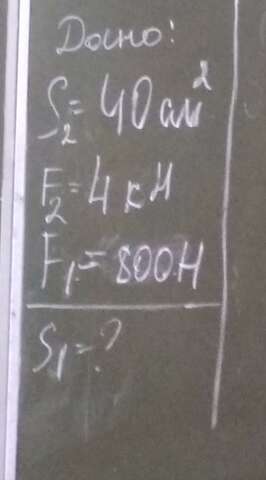 Дано:
S₂=40см²
F₂=4кН
F₁=800Н
S₁=?